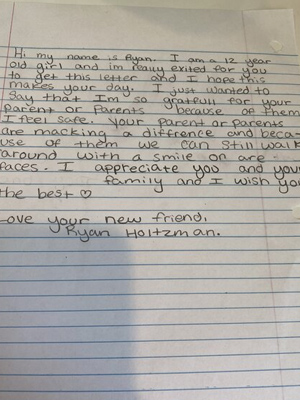 Hi my name is Ryan. I am a 12 year
old girl and im really exited for you
to get this letter and I hope this
makes your day. I just wanted to
say that Im so gratfull for your
parent or Parents because of them
I feel safe. Your parent or parents
are macking a diffrence and beca-
use of them we can still walk
around with a smile on are
faces. I appreciate you and your
family and I wish you
the best ♡
Love your new friend,
Ryan Holtzman.